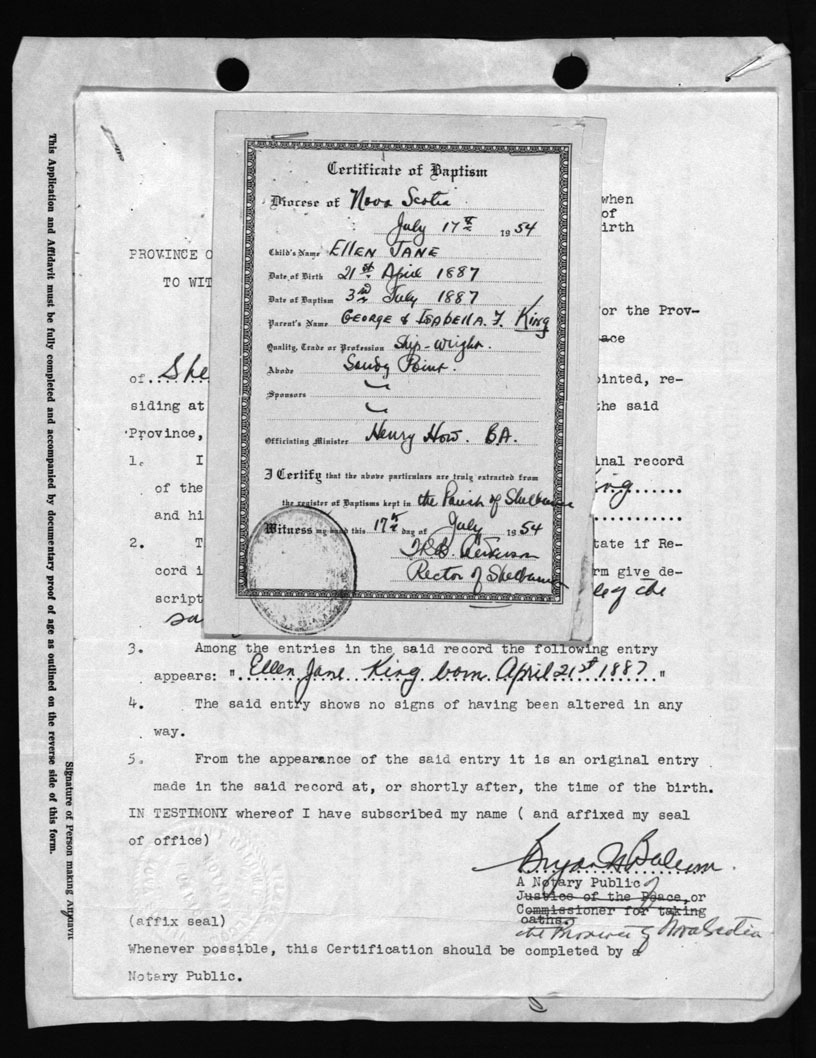 This Application and Affidavit must be fully completed and accompanied by documentary proof of age as outlined on the reverse side of this form.
Signature of Person making Affidavit
Certificate of Baptism
Diocese of Nova Scotia
July 17th 1954
Child's Name ELLEN JANE
Date of Birth 21st April 1887
Date of Baptism 3rd July 1887
Parent's Name GEORGE & ISABELLA. F. King
Quality, Trade or Profession Ship-wright.
Abode Sandy Point.
Sponsors
Officiating Minister Henry How. BA.
I Certify that the above particulars are truly extracted from
the register of Baptisms kept in the Parish of Shelburne
Witness my hand this 17th day of July 1954
Rector of Shelburne
when
of
irth
PROVINCE O
TO WIT
or the Prov-
ace
of ... She
ointed, re-
siding at
the said
Province,
1. I
nal record
of the
ing
and hi
2. T
tate if Re-
cord i
rm give de-
script
le of the
sa
3. Among the entries in the said record the following entry
appears: " Ellen Jane King born April 21st 1887 "
4. The said entry shows no signs of having been altered in any
way.
5. From the appearance of the said entry it is an original entry
made in the said record at, or shortly after, the time of the birth.
IN TESTIMONY whereof I have subscribed my name ( and affixed my seal
of office)
A Notary Public
Justice of the Peace, or
Commissioner for taking
oaths.
the Province of Nova Scotia
(affix seal)
Whenever possible, this Certification should be completed by a
Notary Public.